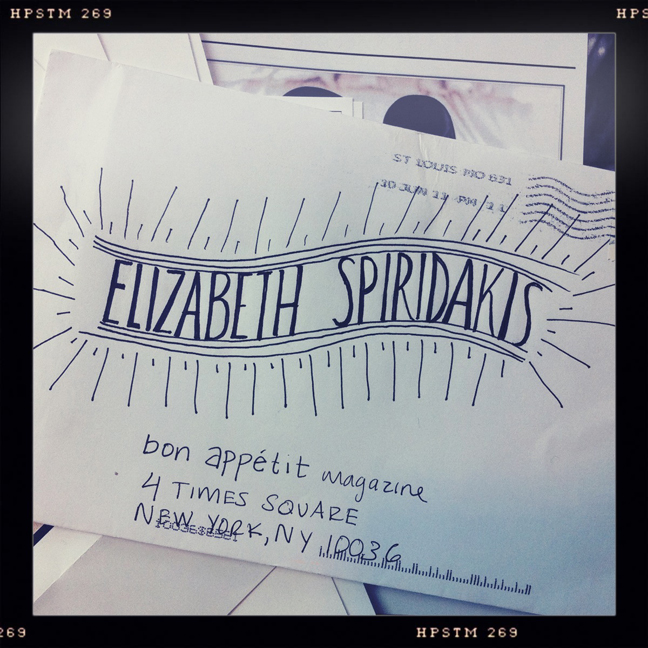 HPSTM 269
HPS
ST LOUIS MO 631
30 JUN 11 PM
ELIZABETH SPIRIDAKIS
bon appétit magazine
4 TIMES SQUARE
NEW YORK, NY 10036
269
HPSTM 269